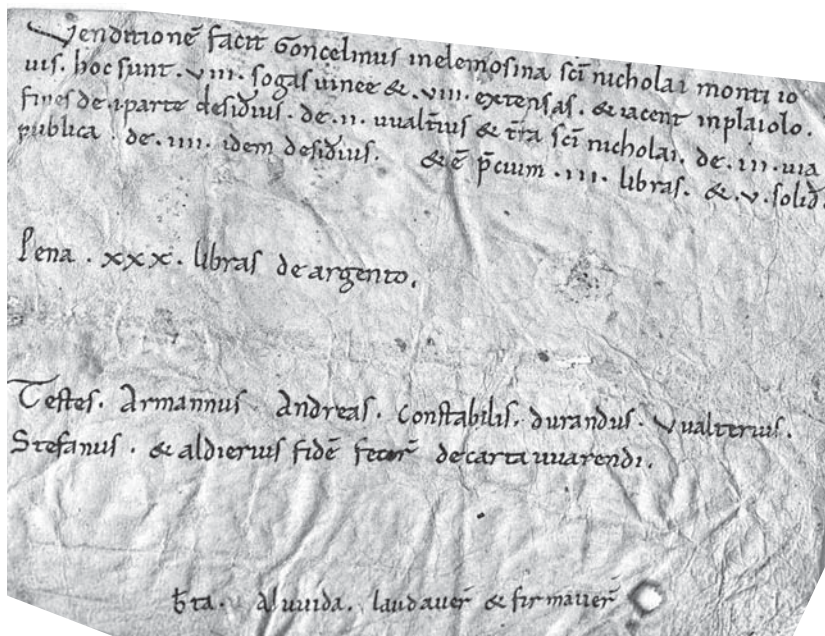 Venditionẽ facit Goncelmus inelemosina sc̃i nicholai monti io
uis. hoc sunt. viii. sogas uinee & .viii. extensas. & iacent inplaiolo.
fines de .i. parte desiđius. de .ii. uualt̃ius & t̃ra sc̃i nicholai. de .iii. uia
publica. de .iiii. idem desiđius. & ẽ p̃cium .iii. libras. & .v. soliđ.
Pena . xxx. libras de argento.
Testes. Armannus Andreas. Constabilis. durandus. Vualterius.
Stefanus. & aldierius fidẽ fecer̃ de carta uuarendi.
Aluuida. laudauer̃ & firmauer̃